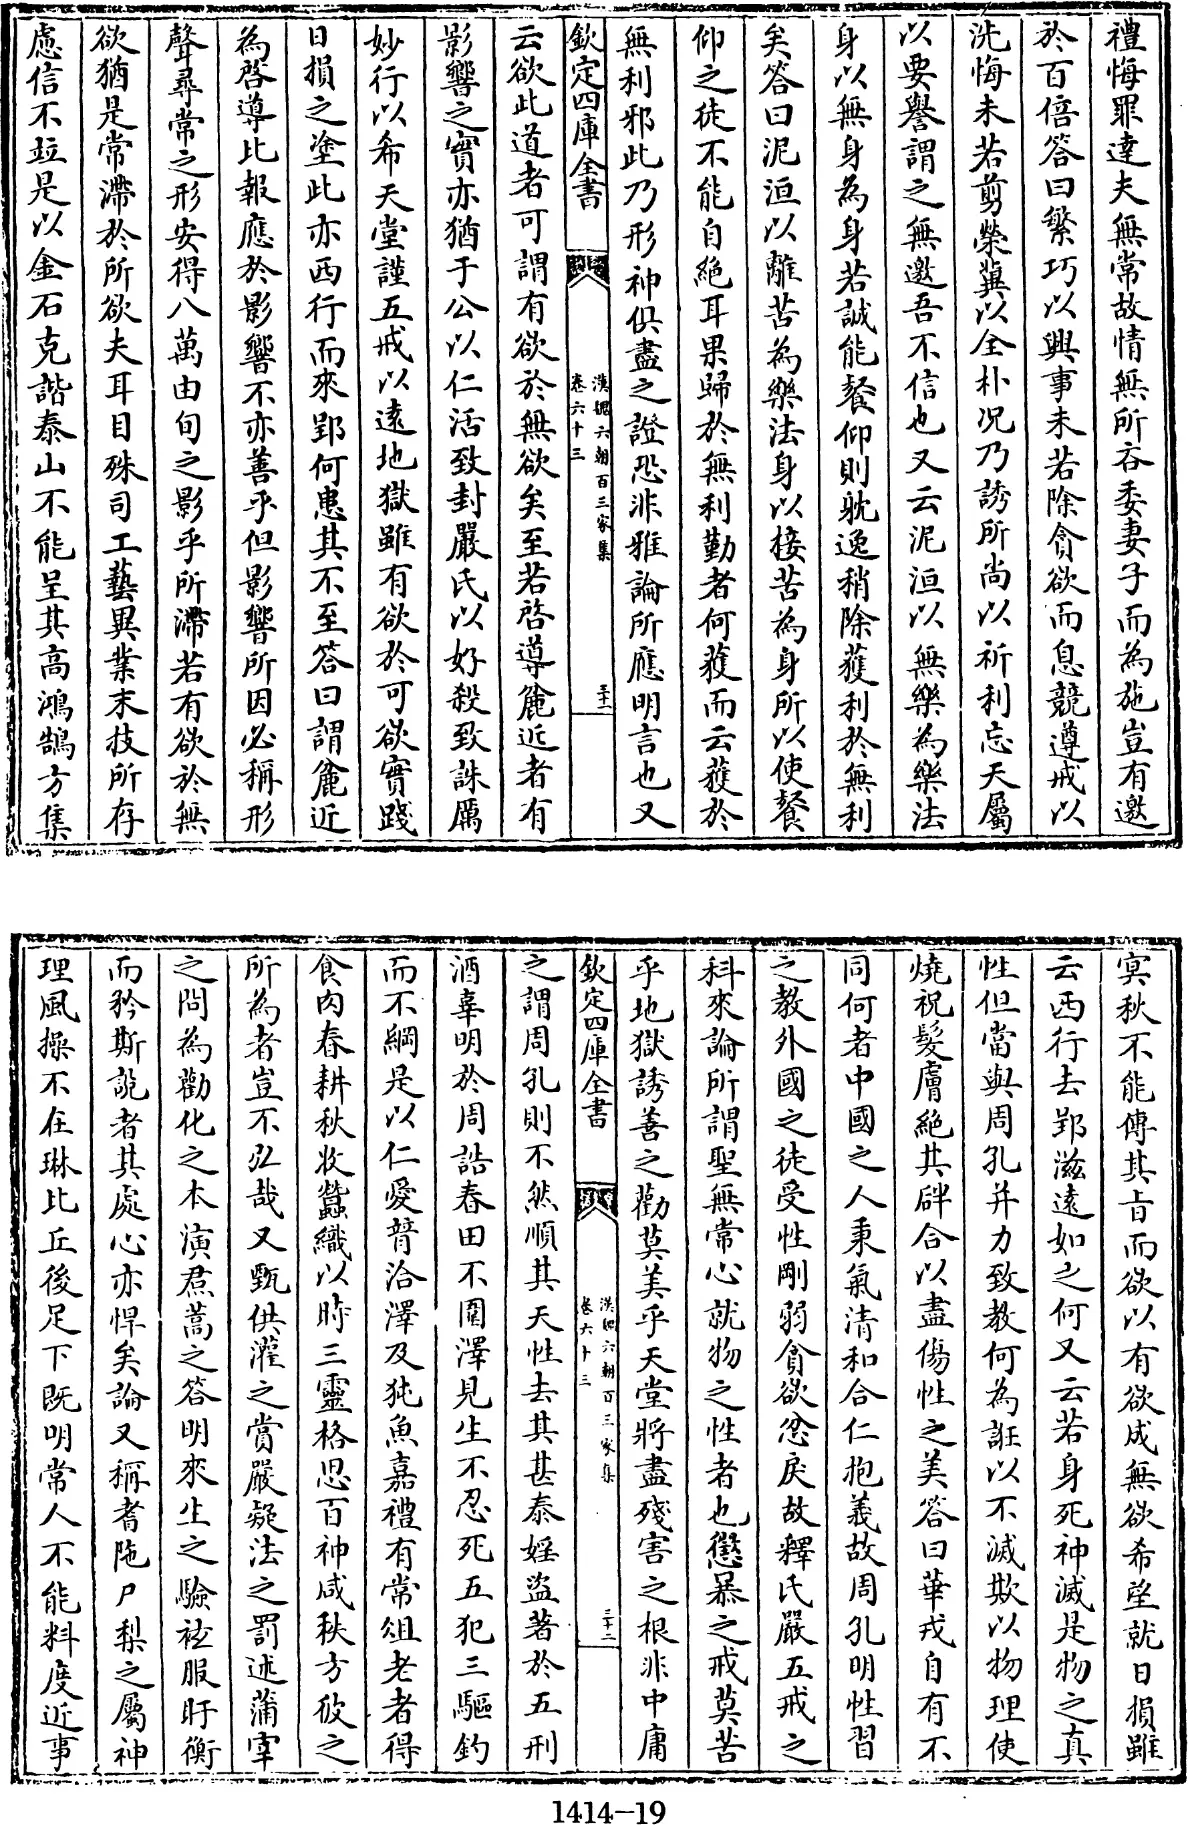 禮悔罪達夫無常故情無所吝委妻子而為施豈有邀
於百倍答曰繁巧以興事未若除貪欲而息競遵戒以
洗悔未若剪榮冀以全朴况乃誘所尚以祈利忘天屬
以要譽謂之無邀吾不信也又云泥洹以無樂為樂法
身以無身為身若誠能餐仰則躭逸稍除獲利於無利
矣答曰泥洹以離苦為樂法身以接苦為身所以使餐
仰之徒不能自絶耳果歸於無利勤者何獲而云獲於
無利邪此乃形神俱盡之證恐非雅論所應明言也又
欽定四庫全書
漢魏六朝百三家集
卷六十三
三十一
云欲此道者可謂有欲於無欲矣至若啓導麄近者有
影響之實亦猶于公以仁活致封嚴氏以好殺致誅厲
妙行以希天堂謹五戒以遠地獄雖有欲於可欲實踐
日損之塗此亦西行而來郢何患其不至答曰謂麄近
為啓導比報應於影響不亦善乎但影響所因必稱形
聲尋常之形安得八萬由旬之影乎所滯若有欲於無
欲猶是常滯於所欲夫耳目殊司工藝異業末技所存
慮信不竝是以金石克諧泰山不能呈其高鴻鵠方集
冥秋不能傳其㫖而欲以有欲成無欲希望就日損雖
云西行去郢滋遠如之何又云若身死神滅是物之真
性但當與周孔并力致教何為誑以不滅欺以物理使
燒祝髮膚絶其胖合以盡傷性之美答曰華戎自有不
同何者中國之人稟氣清和合仁抱義故周孔明性習
之教外國之徒受性剛弱貪欲忿戾故釋氏嚴五戒之
科來論所謂聖無常心就物之性者也懲暴之戒莫苦
乎地獄誘善之勸莫美乎天堂將盡殘害之根非中庸
欽定四庫全書
漢魏六朝百三家集
卷六十三
三十二
之謂周孔則不然順其天性去其甚泰婬盜著於五刑
酒辜明於周誥春田不圍澤見生不忍死五犯三驅釣
而不網是以仁愛普洽澤及㹠魚嘉禮有常俎老者得
食肉春耕秋收蠶織以時三靈格思百神咸秩方彼之
所為者豈不弘哉又甄供灌之賞嚴疑法之罰述蒲宰
之問為勸化之本演焄蒿之答明來生之驗袨服盱衡
而矜斯說者其處心亦悍矣論又稱耆陁尸梨之屬神
理風操不在琳比丘後足下既明常人不能料度近事